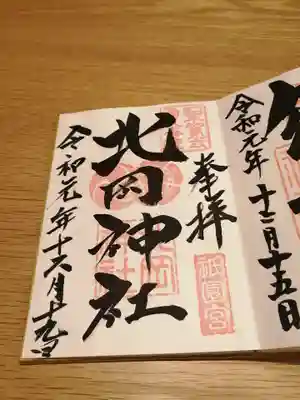 令和元年十二月十五日
奉拝
祇園宮
北岡神社
令和元年十二月十五日